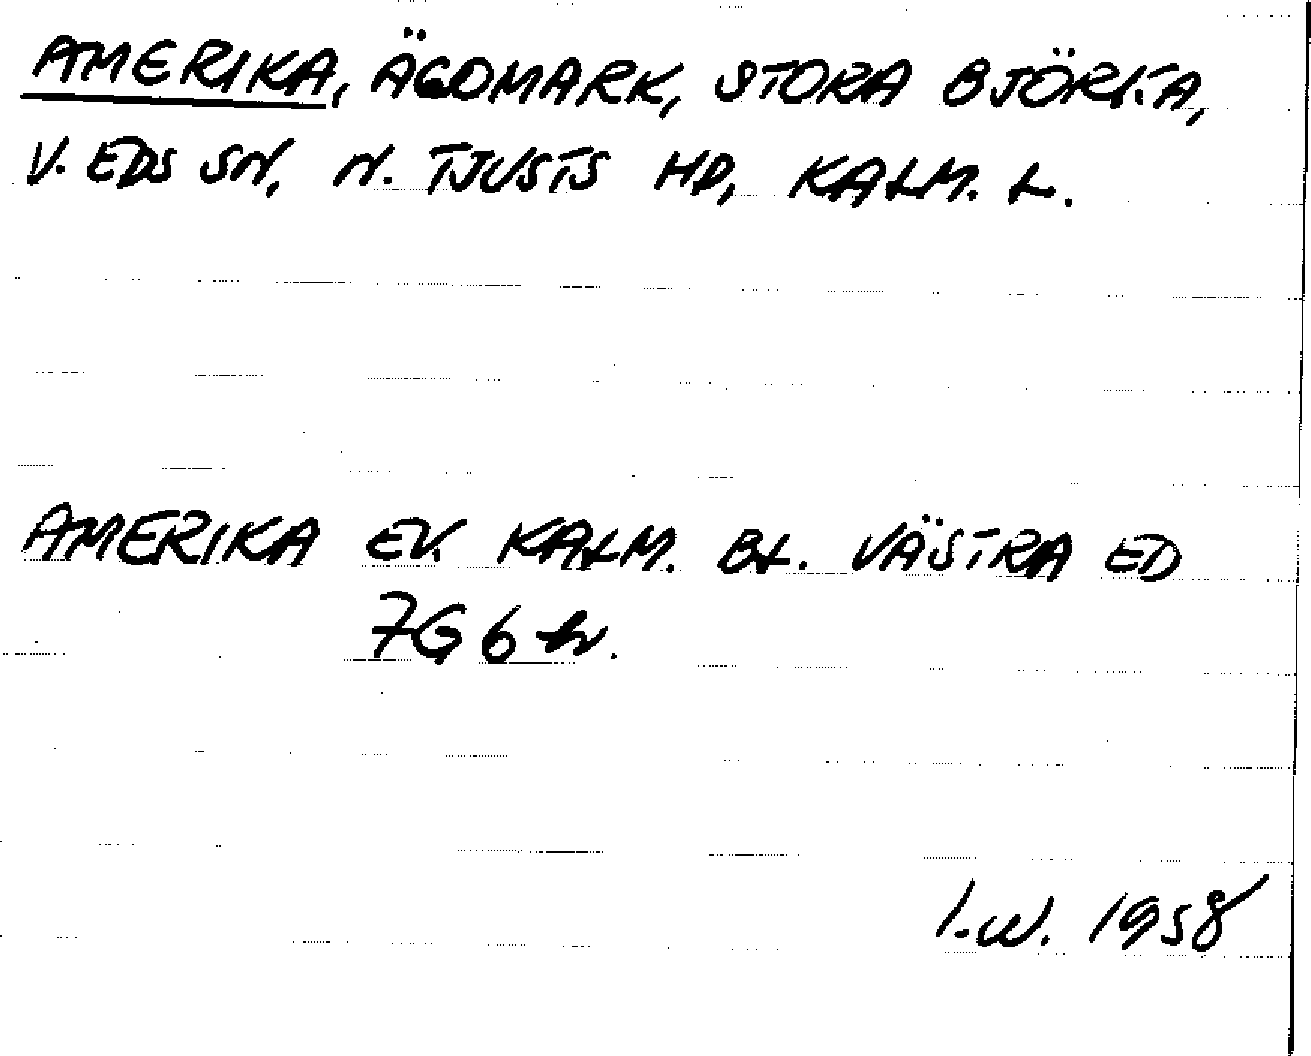 AMERIKA, ÄGOMARK, STORA BJÖRKA,
V. EDS SN, N. TJUSTS HD, KALM. L.
AMERIKA EK. KALM. BL. VÄSTRA ED
7G6
I.W. 1958